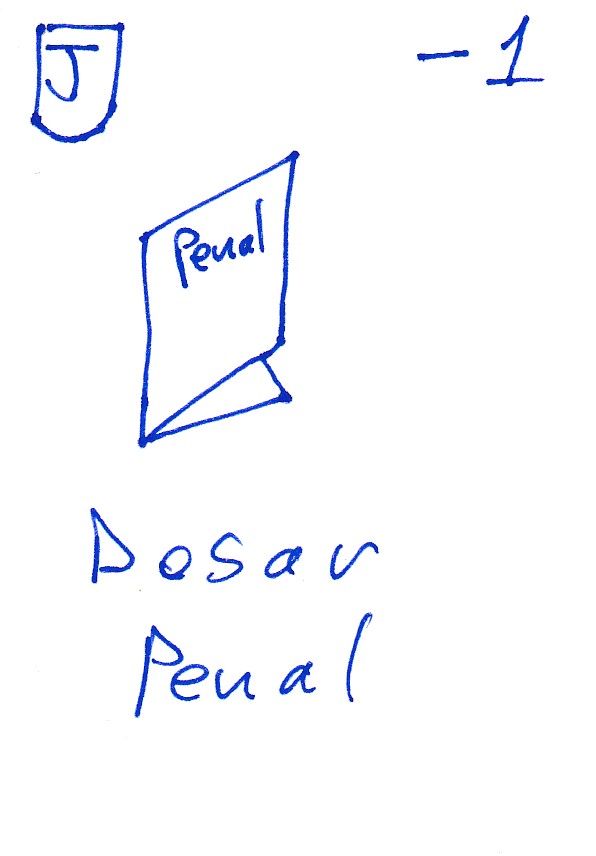 J -1
Penal
Dosar
Penal